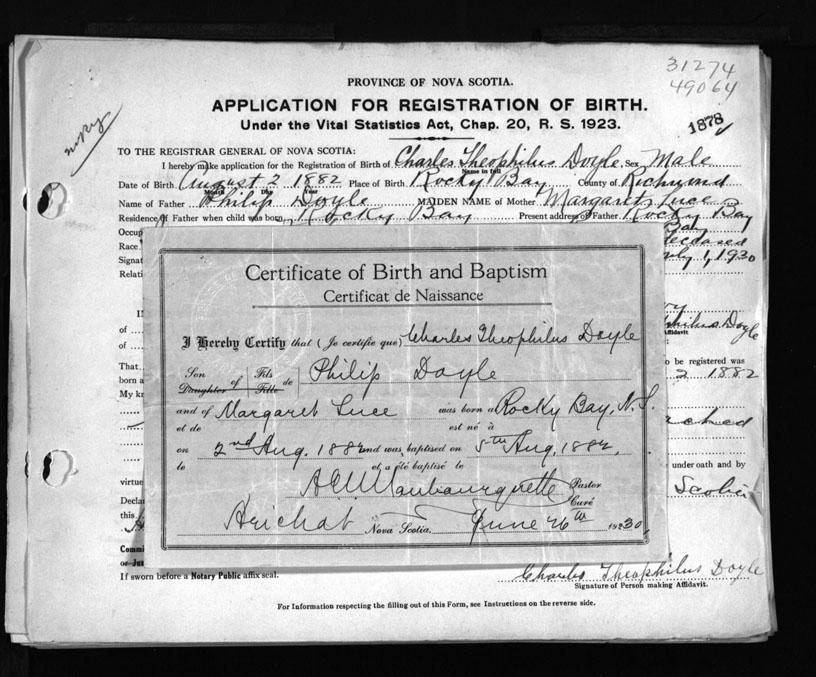 31274
49064
PROVINCE OF NOVA SCOTIA.
APPLICATION FOR REGISTRATION OF BIRTH.
Under the Vital Statistics Act, Chap. 20, R. S. 1923.
1878
TO THE REGISTRAR GENERAL OF NOVA SCOTIA:
I hereby make application for the Registration of Birth of Charles Theophilus Doyle, Sex Male
Name in full
Date of Birth August 2 1882 Place of Birth Rocky Bay County of Richmond
Month Day Year
Name of Father Philip Doyle MAIDEN NAME of Mother Margaret Luce
Residence of Father when child was born Rocky Bay Present address of Father Rocky Bay
Occup Bay
Race deceased
Signat July 1, 1930
Relati
Certificate of Birth and Baptism
Certificat de Naissance
I Hereby Certify that (Je certifie que) Charles Theophilus Doyle
Son Fils
Daughter of Fille de Philip Doyle
and of Margaret Luce was born a Rocky Bay, N.S.
et de est né à
on 2nd Aug. 1882 and was baptised on 5th Aug. 1882.
le et a été baptisé le
Pastor
Curé
Arichat, Nova Scotia, June 26th 1930.
In
of
of
philus Doyle
ffidavit
That
o be registered was
born a
2 1882
My kn
ched
under oath and by
virtue
Scotia
Decla
this
Commi
or Ju
If sworn before a Notary Public affix seal.
Charles Theophilus Doyle
Signature of Person making Affidavit.
For Information respecting the filling out of this Form, see Instructions on the reverse side.